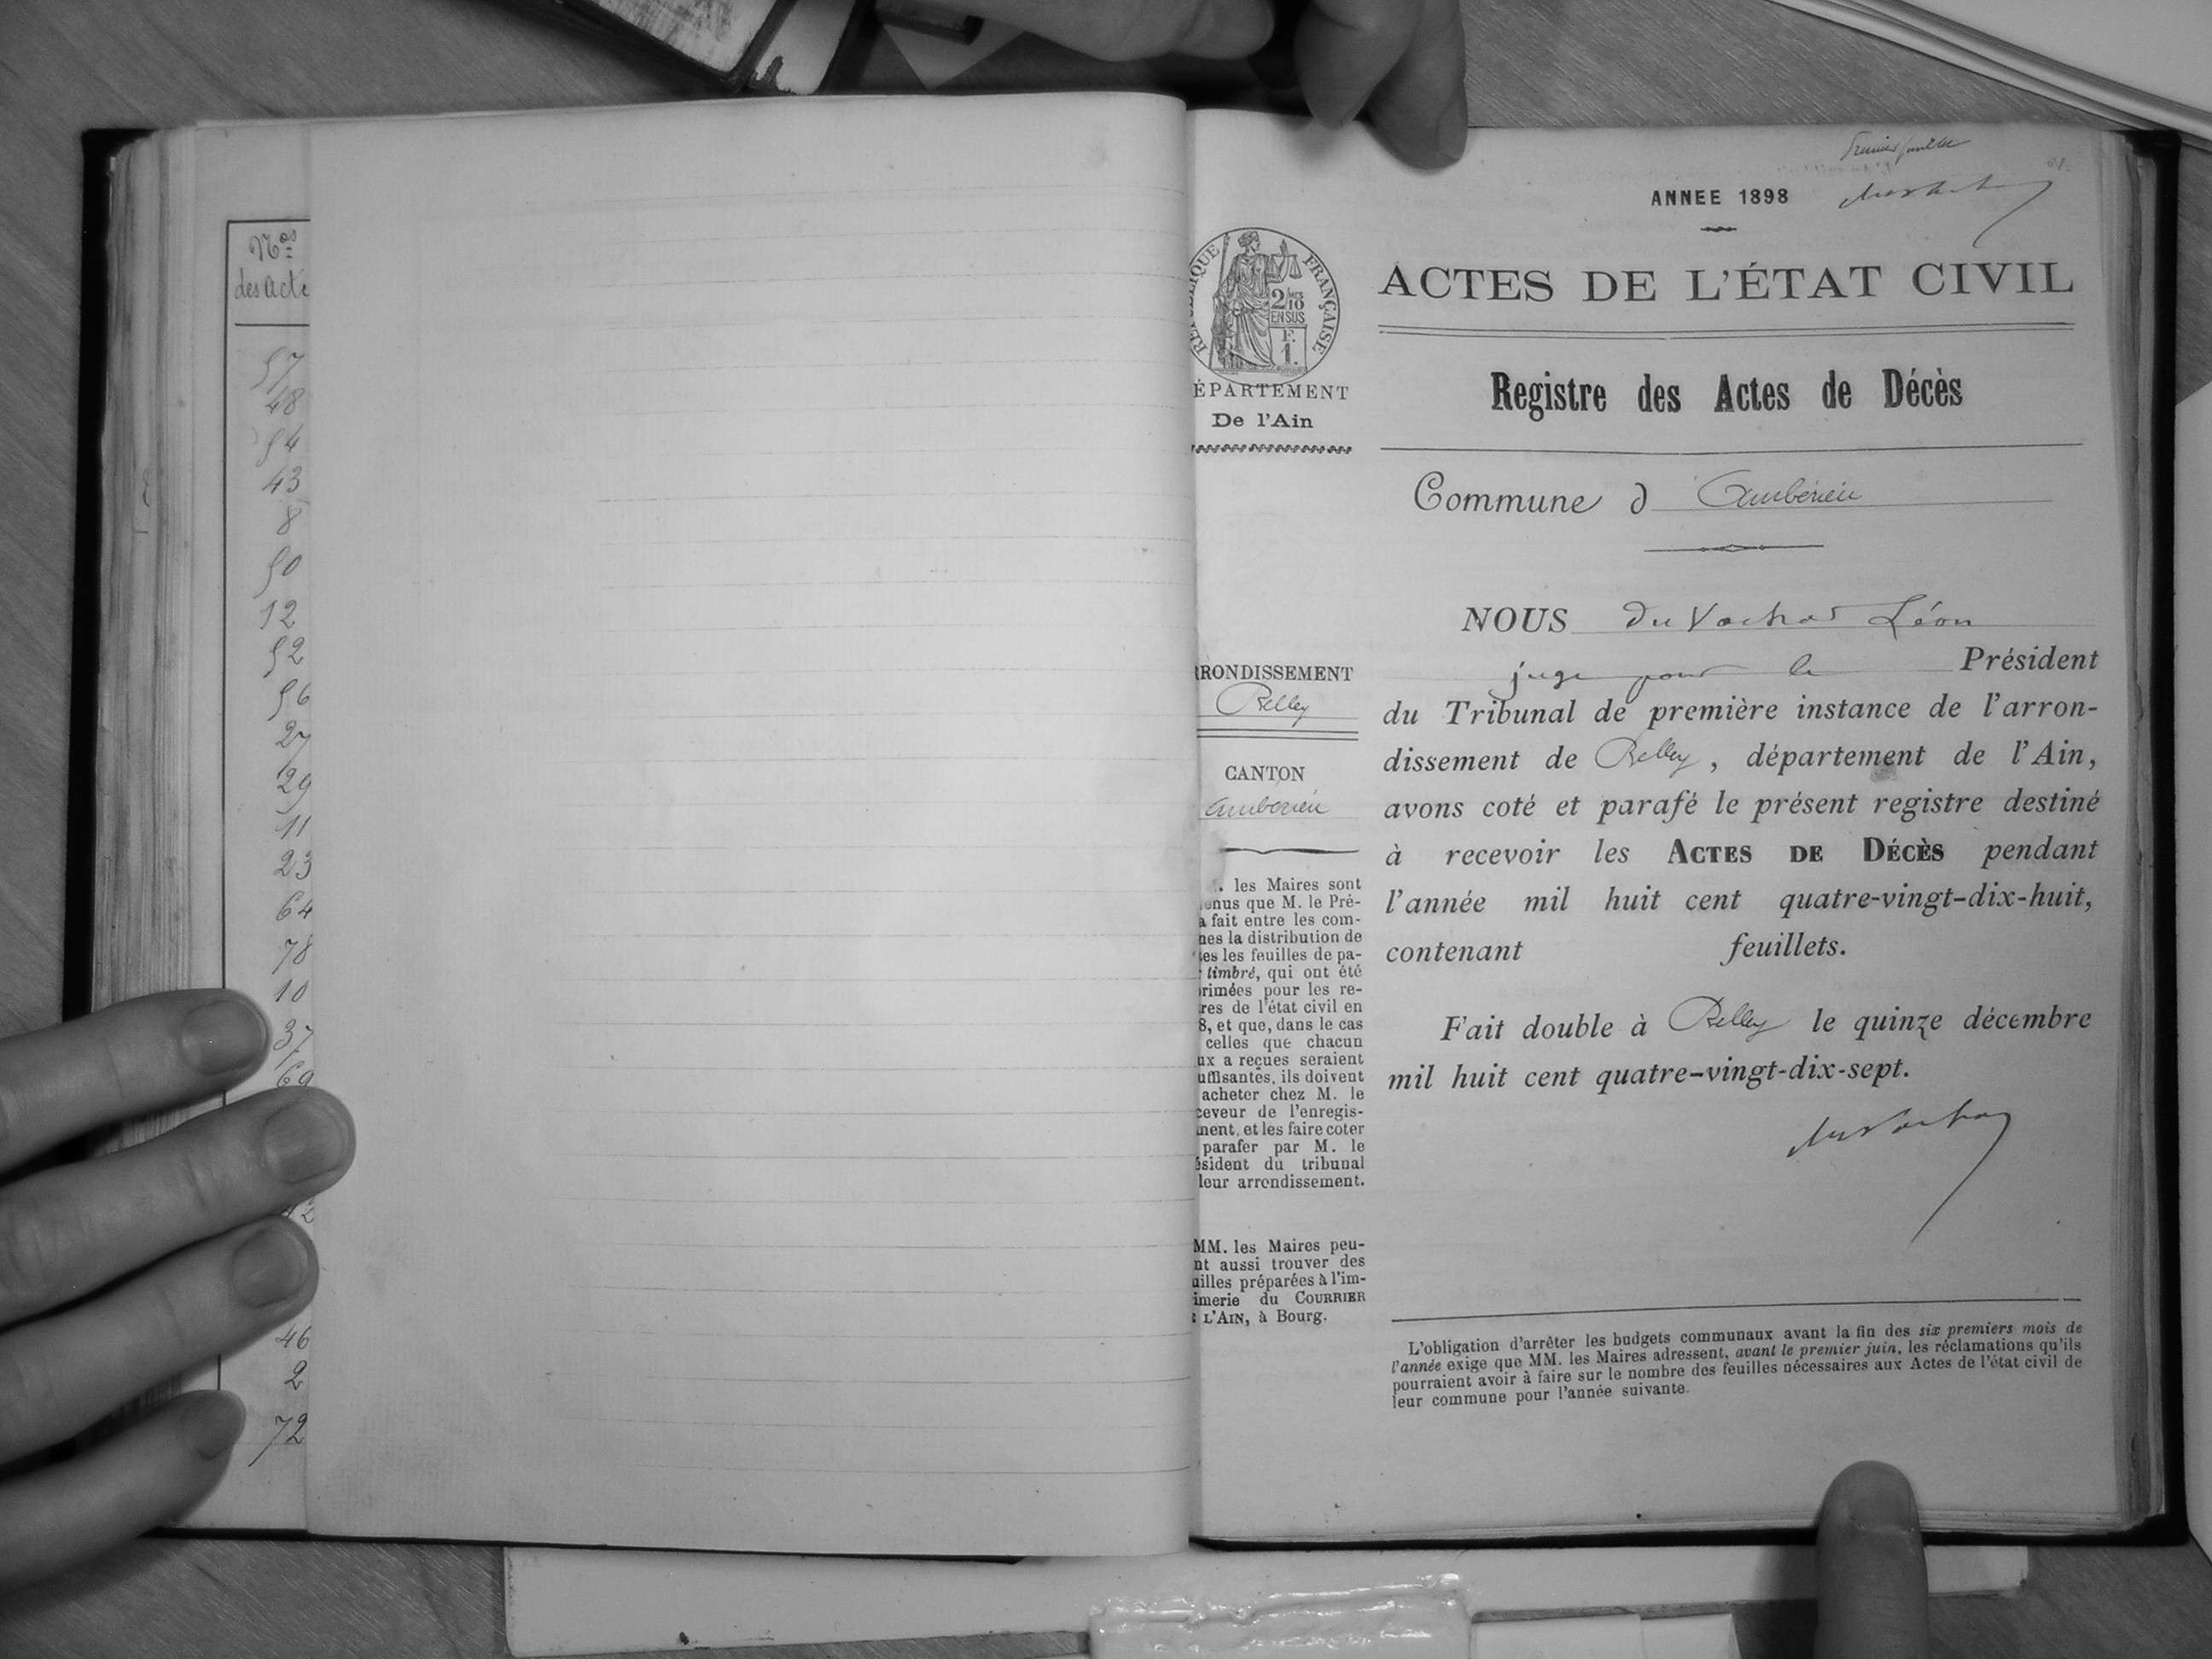 Nos
des Acte
57
48
54
43
8
50
12
52
56
27
29
11
23
64
78
10
37
69
46
2
72
Premier feuillet
ANNEE 1898
ACTES DE L'ÉTAT CIVIL
RÉPUBLIQUE FRANÇAISE
2/10
EN SUS
F.
1.
ÉPARTEMENT
De l'Ain
Registre des Actes de Décès
Commune d Ambérieu
RRONDISSEMENT
Belley
CANTON
Ambérieu
. les Maires sont
enus que M. le Pré-
a fait entre les com-
nes la distribution de
es les feuilles de pa-
timbré, qui ont été
rimées pour les re-
res de l'état civil en
8, et que, dans le cas
celles que chacun
ux a reçues seraient
uffisantes, ils doivent
acheter chez M. le
ceveur de l'enregis-
ment, et les faire coter
parafer par M. le
ésident du tribunal
leur arrondissement.
MM. les Maires peu-
nt aussi trouver des
uilles préparées à l'im-
imerie du COURRIER
L'AIN, à Bourg.
NOUS Du Vachat Léon
juge pour le Président
du Tribunal de première instance de l'arron-
dissement de Belley, département de l'Ain,
avons coté et parafé le présent registre destiné
à recevoir les ACTES DE DÉCÈS pendant
l'année mil huit cent quatre-vingt-dix-huit,
contenant feuillets.
Fait double à Belley le quinze décembre
mil huit cent quatre-vingt-dix-sept.
L'obligation d'arrêter les budgets communaux avant la fin des six premiers mois de
l'année exige que MM. les Maires adressent, avant le premier juin, les réclamations qu'ils
pourraient avoir à faire sur le nombre des feuilles nécessaires aux Actes de l'état civil de
leur commune pour l'année suivante.